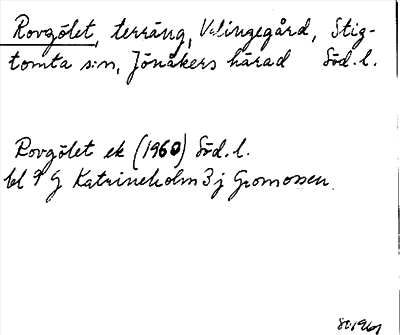 Rovgölet, terräng, Valingegård, Stig-
tomta s:n, Jönåkers härad Söd.l.
Rovgölet ek (1960) Söd.l.
bl 9 G Katrineholm 3 j Gromossen